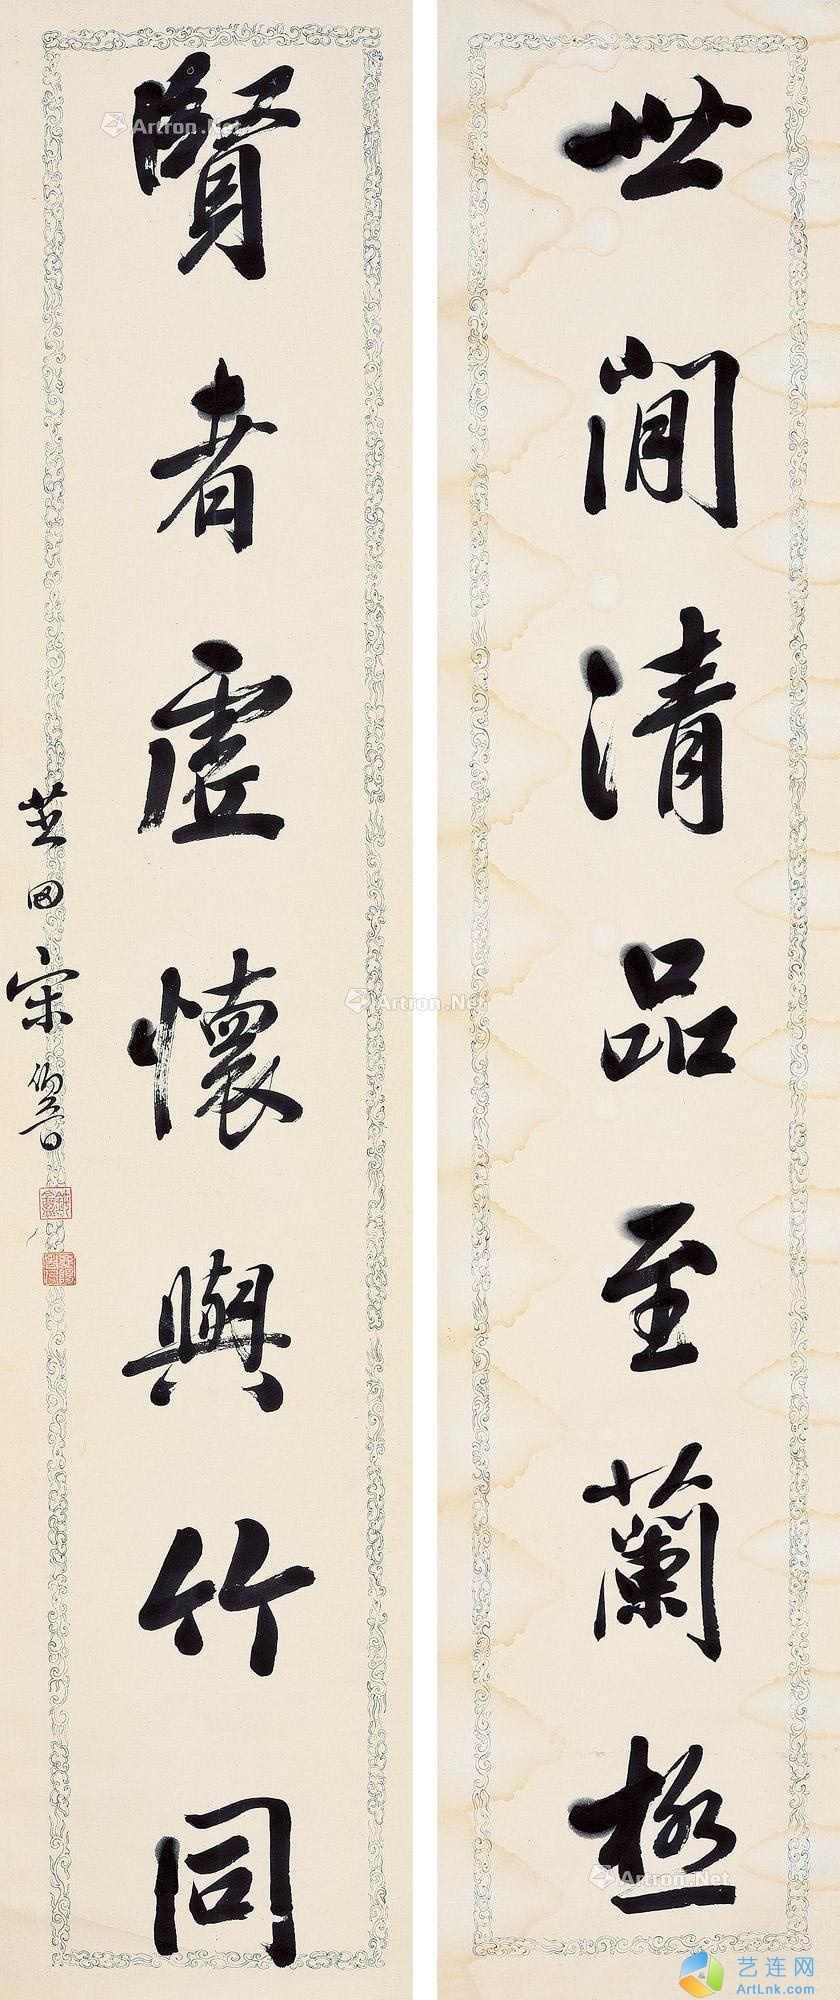 世間清品至蘭極
賢者虛懷與竹同
芝田宋伯魯
Artron.Net
Artron.Net
Artron.Net
艺连网
ArtLnk.com